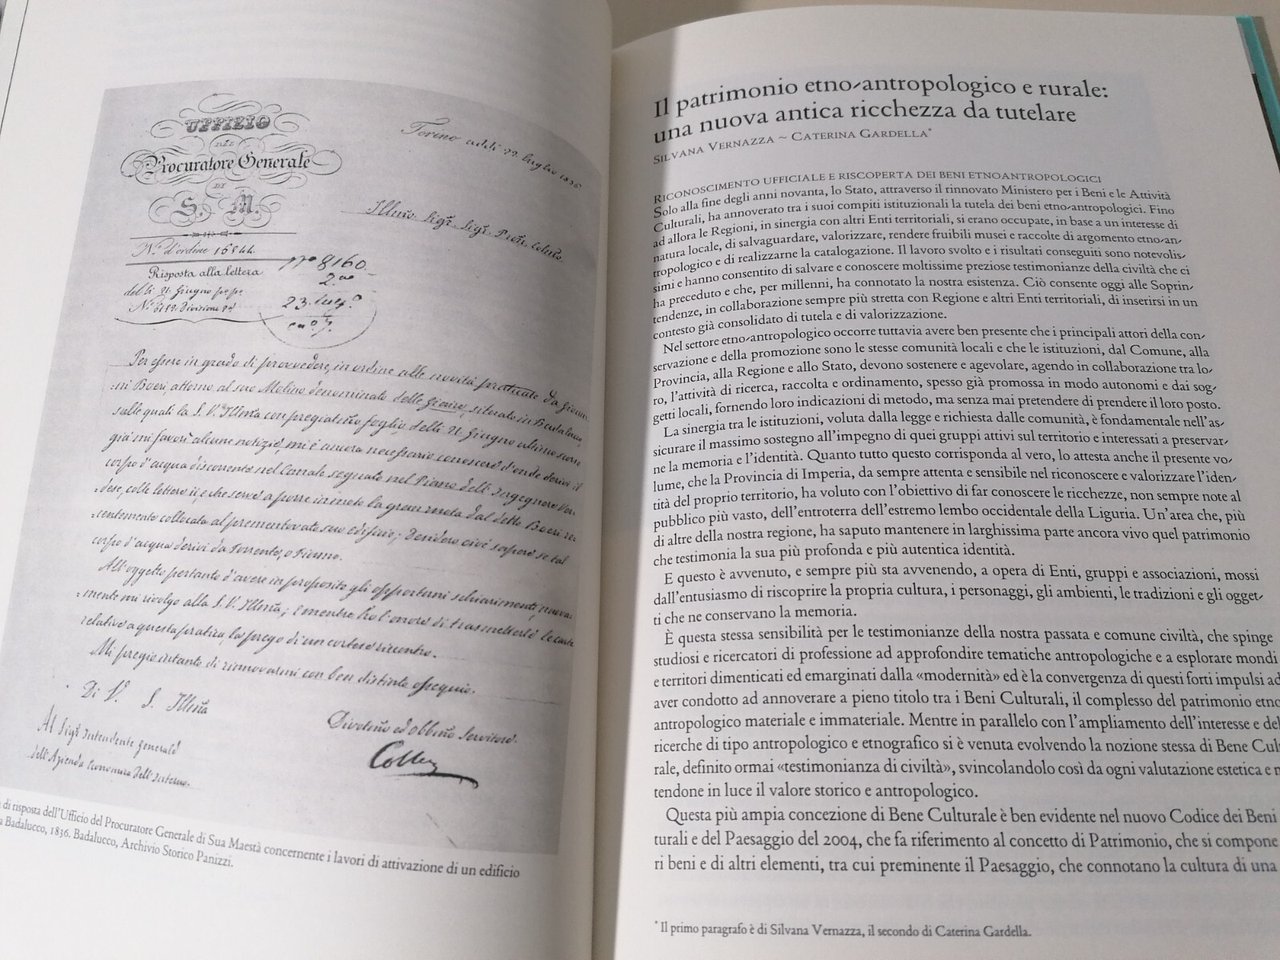 UFFIZIO
DEL
Procuratore Generale
DI
S. M.
N.º d'ordine 16844
Risposta alla lettera
delli 21 Giugno pº pº
Nº 6112 Divisione 2ª
Torino addì 22 luglio 1836
Illmo Sigr. Sigr. Pron. Colmo.
nº 8160
2ª
23 lugº
Per essere in grado di provvedere, in ordine alle novità praticate da Giovan-
ni Boeri, attorno al suo Molino denominato delle Giaire, situato in Badalucco
sulle quali la S. V. Illma con pregiatmo foglio delli 21 Giugno ultimo scorso
già mi favorì alcune notizie, mi è ancora necessario conoscere d'onde derivi il
corpo d'acqua discorrente nel Canale segnato nel Piano dell'Ingegnere
colle lettere e che serve a porre in moto la gran ruota dal detto Boeri re-
centemente collocata al prementovato suo edifizio; Desidero cioè sapere se tal
corpo d'acqua derivi da Torrente, o Fiume.
All'oggetto pertanto d'avere in proposito gli opportuni schiarimenti, nuova-
mente mi rivolgo alla S. V. Illma; e mentre ho l'onore di trasmetterle le carte
relative a questa pratica, la prego di un cortese riscontro.
Mi pregio intanto di rinnovarmi con ben distinto ossequio.
Di V. S. Illma
Divotmo ed obbmo Servitore
Al Sigr Intendente Generale
dell'Azienda Economica dell'Interno.
di risposta dell'Ufficio del Procuratore Generale di Sua Maestà concernente i lavori di attivazione di un edificio
a Badalucco, 1836. Badalucco, Archivio Storico Panizzi.
Il patrimonio etno-antropologico e rurale:
una nuova antica ricchezza da tutelare
SILVANA VERNAZZA ~ CATERINA GARDELLA*
RICONOSCIMENTO UFFICIALE E RISCOPERTA DEI BENI ETNOANTROPOLOGICI
Solo alla fine degli anni novanta, lo Stato, attraverso il rinnovato Ministero per i Beni e le Attività
Culturali, ha annoverato tra i suoi compiti istituzionali la tutela dei beni etno-antropologici. Fino
ad allora le Regioni, in sinergia con altri Enti territoriali, si erano occupate, in base a un interesse di
natura locale, di salvaguardare, valorizzare, rendere fruibili musei e raccolte di argomento etno-an-
tropologico e di realizzarne la catalogazione. Il lavoro svolto e i risultati conseguiti sono notevolis-
simi e hanno consentito di salvare e conoscere moltissime preziose testimonianze della civiltà che ci
ha preceduto e che, per millenni, ha connotato la nostra esistenza. Ciò consente oggi alle Soprin-
tendenze, in collaborazione sempre più stretta con Regione e altri Enti territoriali, di inserirsi in un
contesto già consolidato di tutela e di valorizzazione.
Nel settore etno-antropologico occorre tuttavia avere ben presente che i principali attori della con-
servazione e della promozione sono le stesse comunità locali e che le istituzioni, dal Comune, alla
Provincia, alla Regione e allo Stato, devono sostenere e agevolare, agendo in collaborazione tra lo-
ro, l'attività di ricerca, raccolta e ordinamento, spesso già promossa in modo autonomi e dai sog-
getti locali, fornendo loro indicazioni di metodo, ma senza mai pretendere di prendere il loro posto.
La sinergia tra le istituzioni, voluta dalla legge e richiesta dalle comunità, è fondamentale nell'as-
sicurare il massimo sostegno all'impegno di quei gruppi attivi sul territorio e interessati a preservar-
ne la memoria e l'identità. Quanto tutto questo corrisponda al vero, lo attesta anche il presente vo-
lume, che la Provincia di Imperia, da sempre attenta e sensibile nel riconoscere e valorizzare l'iden-
tità del proprio territorio, ha voluto con l'obiettivo di far conoscere le ricchezze, non sempre note al
pubblico più vasto, dell'entroterra dell'estremo lembo occidentale della Liguria. Un'area che, più
di altre della nostra regione, ha saputo mantenere in larghissima parte ancora vivo quel patrimonio
che testimonia la sua più profonda e più autentica identità.
E questo è avvenuto, e sempre più sta avvenendo, a opera di Enti, gruppi e associazioni, mossi
dall'entusiasmo di riscoprire la propria cultura, i personaggi, gli ambienti, le tradizioni e gli ogget-
ti che ne conservano la memoria.
È questa stessa sensibilità per le testimonianze della nostra passata e comune civiltà, che spinge
studiosi e ricercatori di professione ad approfondire tematiche antropologiche e a esplorare mondi
e territori dimenticati ed emarginati dalla «modernità» ed è la convergenza di questi forti impulsi ad
aver condotto ad annoverare a pieno titolo tra i Beni Culturali, il complesso del patrimonio etno
antropologico materiale e immateriale. Mentre in parallelo con l'ampliamento dell'interesse e del
ricerche di tipo antropologico e etnografico si è venuta evolvendo la nozione stessa di Bene Cul
rale, definito ormai «testimonianza di civiltà», svincolandolo così da ogni valutazione estetica e m
tendone in luce il valore storico e antropologico.
Questa più ampia concezione di Bene Culturale è ben evidente nel nuovo Codice dei Beni
turali e del Paesaggio del 2004, che fa riferimento al concetto di Patrimonio, che si compone
ri beni e di altri elementi, tra cui preminente il Paesaggio, che connotano la cultura di una
* Il primo paragrafo è di Silvana Vernazza, il secondo di Caterina Gardella.